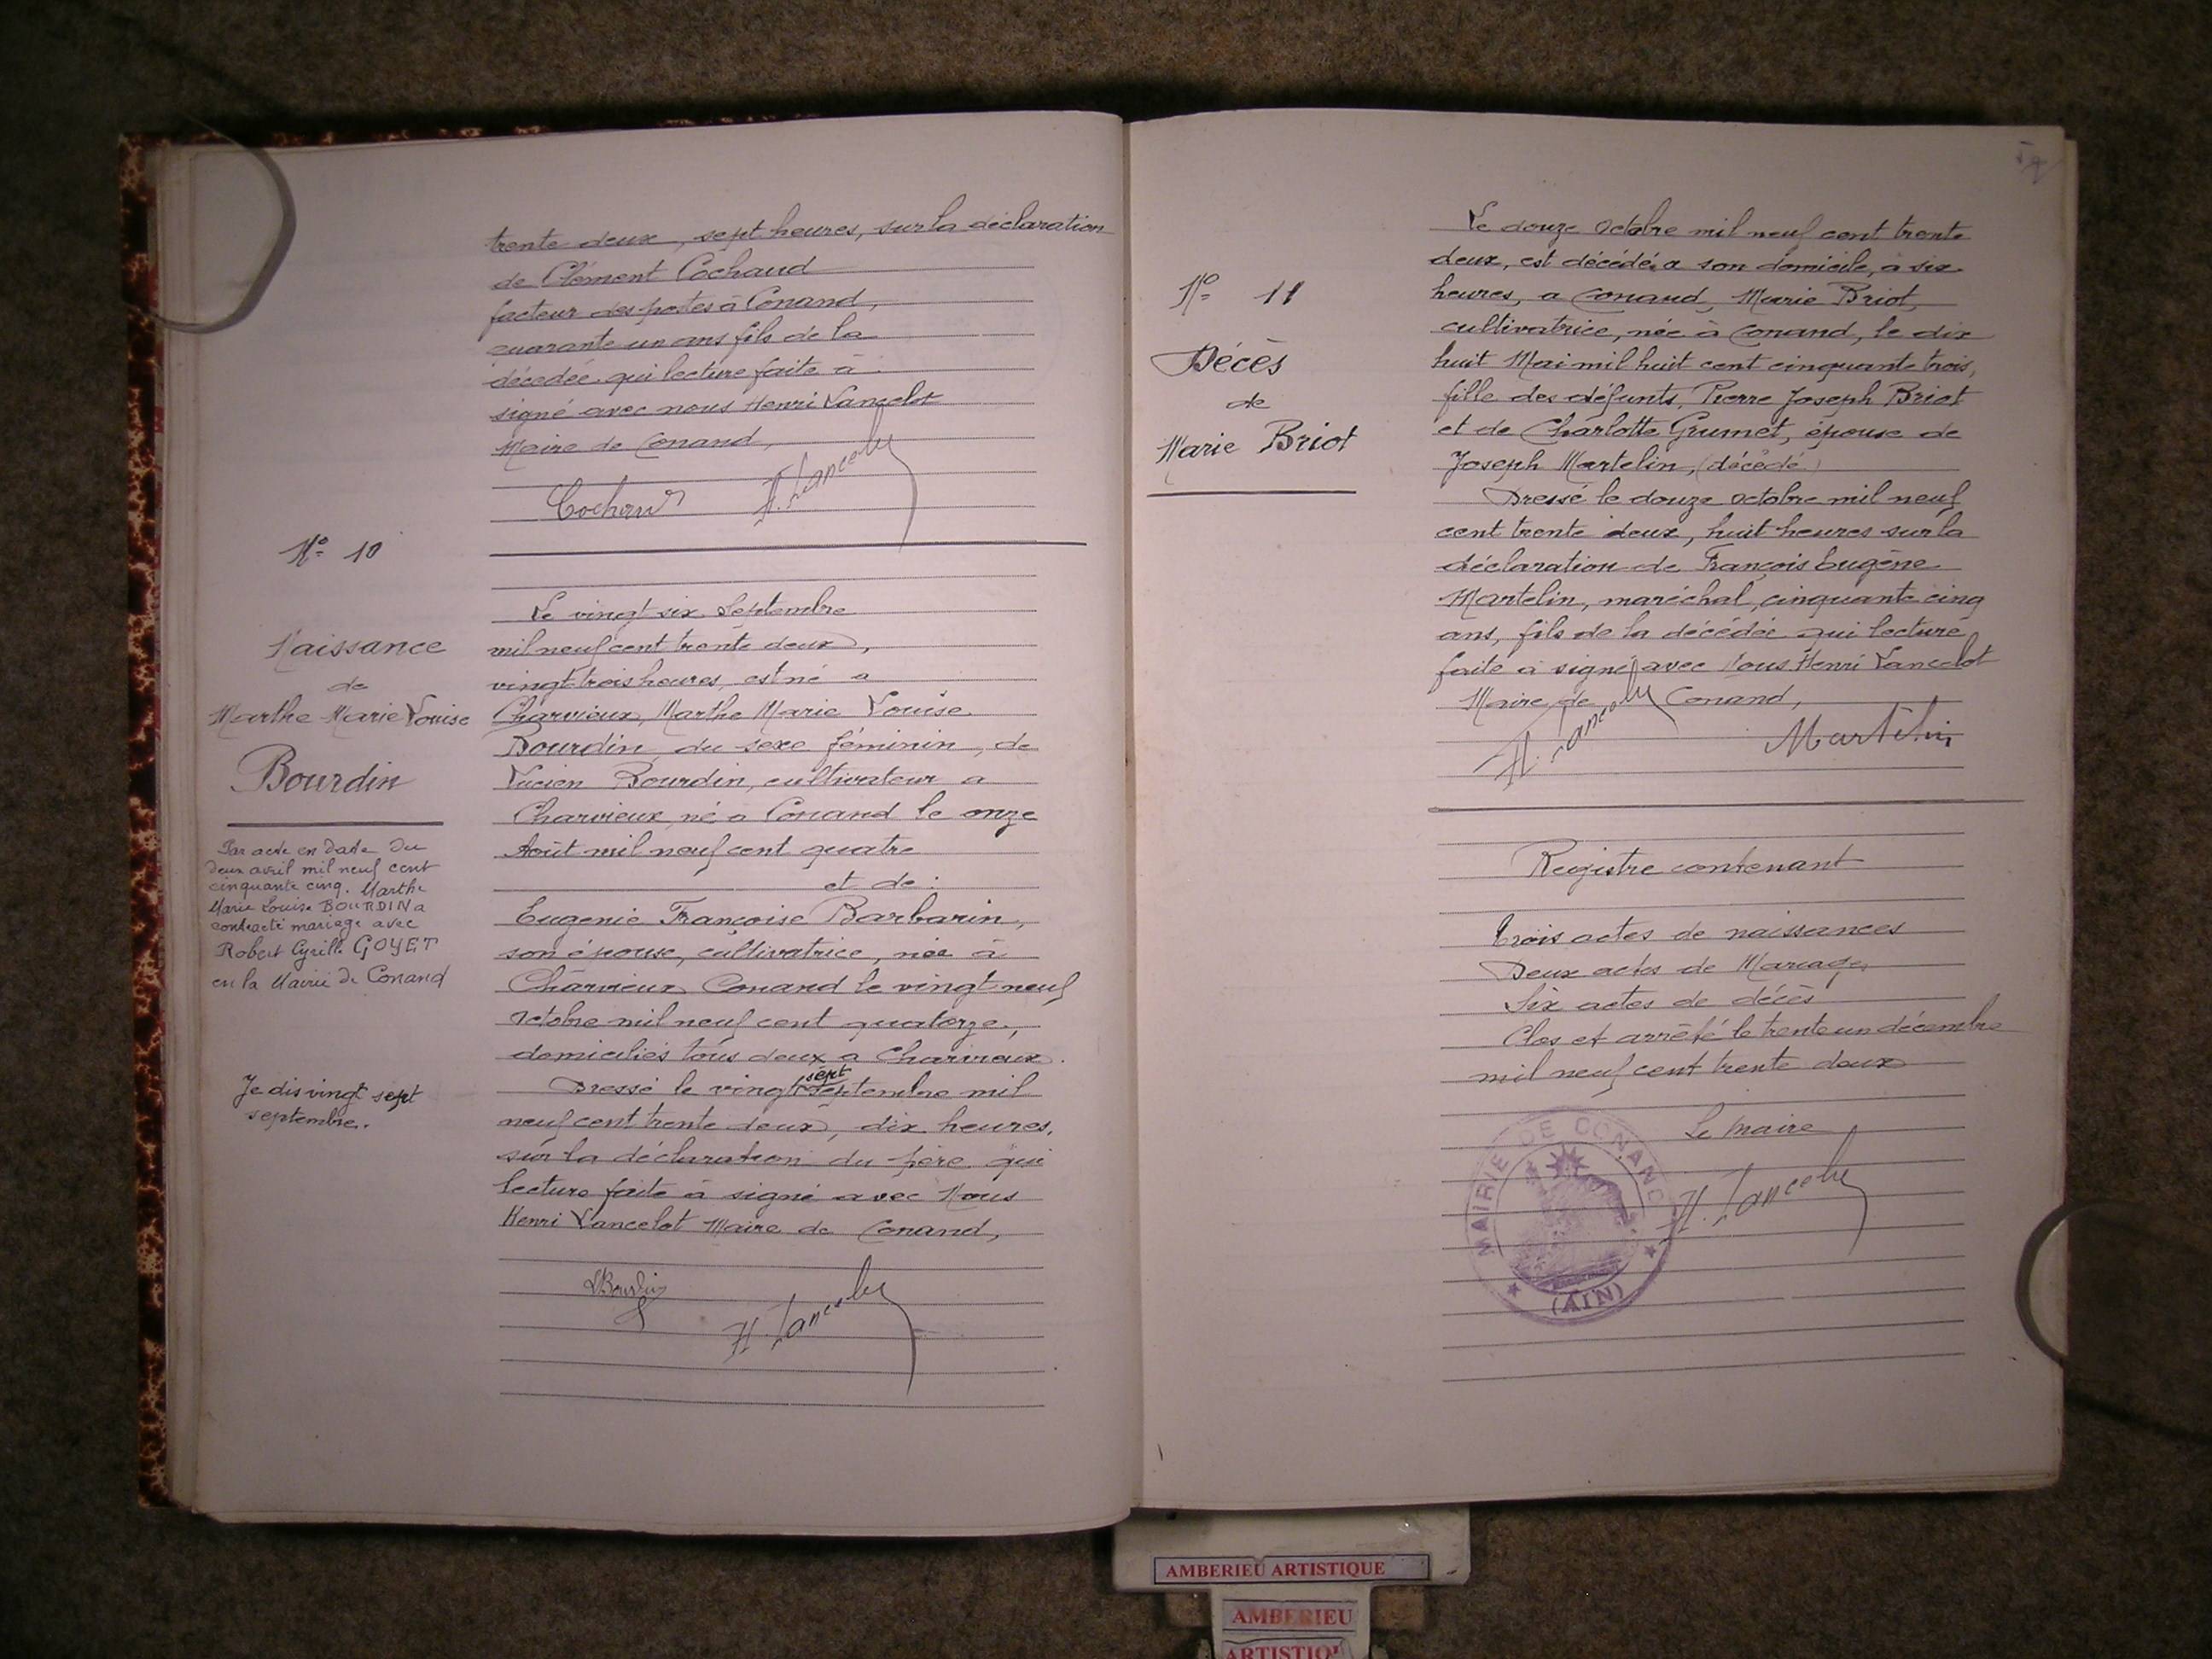 trente deux, sept heures, sur la déclaration
de Clément Cochaud
facteur des postes à Conand,
quarante un ans fils de la
décédée qui lecture faite à
signé avec nous Henri Lancelot
Maire de Conand,
Cochaud H. Lancelot
N° 10
Naissance
de
Marthe Marie Louise
Bourdin
Par acte en date du
deux avril mil neuf cent
cinquante cinq. Marthe
Marie Louise BOURDIN a
contracté mariage avec
Robert Cyrille GOYET
en la Mairie de Conand
Je dis vingt sept
septembre.
Le vingt six Septembre
mil neuf cent trente deux,
vingt trois heures, est né a
Charvieux, Marthe Marie Louise
Bourdin, du sexe féminin, de
Lucien Bourdin, cultivateur a
Charvieux, né a Conand le onze
Août mil neuf cent quatre
et de :
Eugenie Françoise Barbarin,
son épouse, cultivatrice, née à
Charvieux Conand le vingt neuf
Octobre mil neuf cent quatorze,
domiciliés tous deux a Charvieux.
Dressé le vingt sept septembre mil
neuf cent trente deux, dix heures,
sur la déclaration du père qui
lecture faite à signé avec Nous
Henri Lancelot Maire de Conand,
LBourdin H. Lancelot
N° 11
Décès
de
Marie Briot
Le douze Octobre mil neuf cent trente
deux, est décédé a son domicile, à six
heures, a Conand, Marie Briot,
cultivatrice, née à Conand, le dix
huit Mai mil huit cent cinquante trois,
fille des défunts, Pierre Joseph Briot
et de Charlotte Grumet, épouse de
Joseph Martelin, (décédé)
Dressé le douze octobre mil neuf
cent trente deux, huit heures sur la
déclaration de François Eugène
Martelin, maréchal, cinquante cinq
ans, fils de la décédée qui lecture
faite a signé avec Nous Henri Lancelot
Maire de Conand,
H. Lancelot Martelin
Registre contenant
Trois actes de naissances
Deux actes de Mariage
Six actes de décès
Clos et arrêté le trente un décembre
mil neuf cent trente deux
Le Maire
H. Lancelot
MAIRIE DE CONAND
(AIN)
AMBERIEU ARTISTIQUE
AMBERIEU